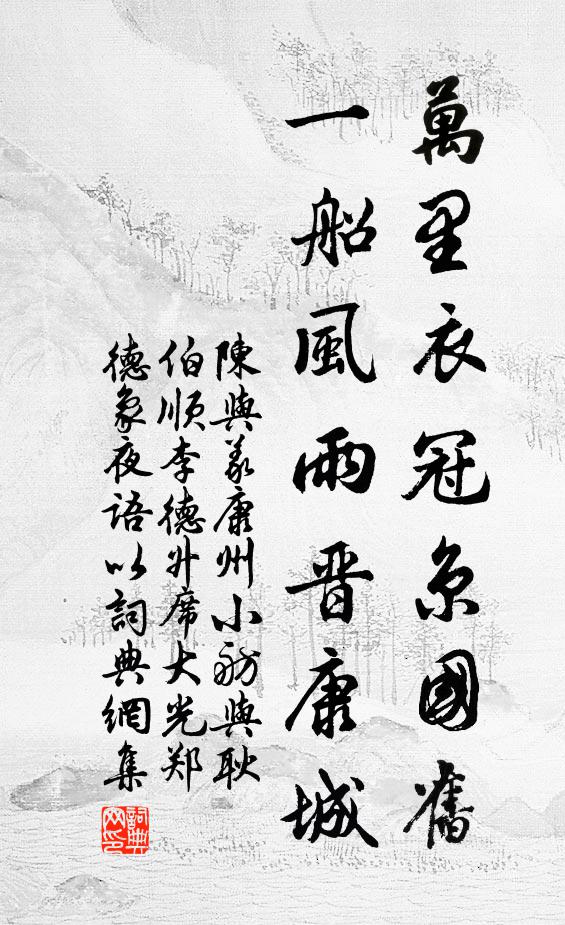 萬里衣冠京國舊
一船風雨晋康城
陳與義康州小舫與耿
伯順李德升席大光郑
德象夜語以詞典網集
詞典
网印